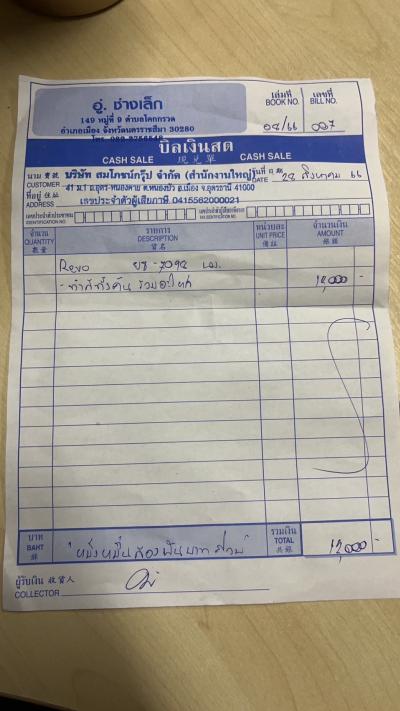 อู่. ช่างเล็ก
149 หมู่ที่ 9 ตำบลโคกกรวด
อำเภอเมือง จังหวัดนครราชสีมา 30280
โทร.
เล่มที่ เลขที่
BOOK NO. BILL NO.
08/66 007
บิลเงินสด
CASH SALE 現兌單 CASH SALE
นาม บริษัท สมโภชน์กรุ๊ป จำกัด (สำนักงานใหญ่) วันที่
CUSTOMER 41 ม.1 ถ.อุดร-หนองคาย ต.หนองบัว อ.เมือง จ.อุดรธานี 41000 DATE 28 สิงหาคม 66
ที่อยู่ 住址 เลขประจำตัวผู้เสียภาษี 0415562000021
ADDRESS
เลขประจำตัวประชาชน เลขประจำตัวผู้เสียภาษีอากร
IDENTIFICATION NO. TAX IDENTIFICATION NO.
จำนวน รายการ หน่วยละ จำนวนเงิน
QUANTITY DESCRIPTION UNIT PRICE AMOUNT
數量 貨名 備註 銀額
Revo 7092
- ทำสีทั้งคัน รวมอะไหล่ 12,000 -
บาท รวมเงิน
BAHT "หนึ่งหมื่นสองพันบาทถ้วน" TOTAL 12,000 -
銖 共銀
ผู้รับเงิน 收貨人
COLLECTOR